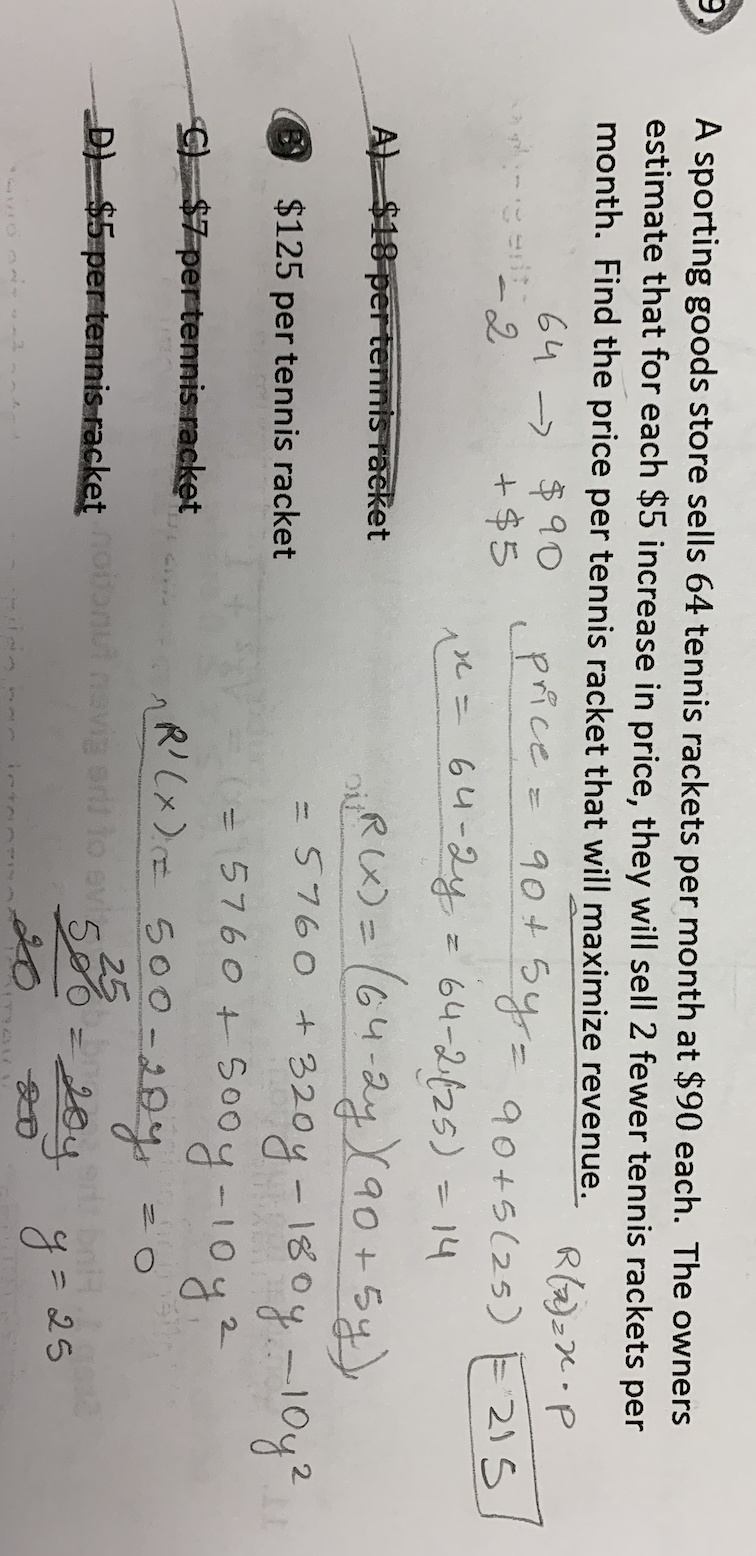 9.
A sporting goods store sells 64 tennis rackets per month at $90 each. The owners
estimate that for each $5 increase in price, they will sell 2 fewer tennis rackets per
month. Find the price per tennis racket that will maximize revenue.
R(x)=x·p
64 → $90
-2 +$5
price = 90+5y = 90+5(25) = 215
x = 64-2y = 64-2(25) = 14
A) $18 per tennis racket
R(x) = (64-2y)(90+5y)
B) $125 per tennis racket
= 5760 + 320y - 180y - 10y²
= 5760 + 500y - 10y²
C) $7 per tennis racket
R'(x) = 500 - 20y = 0
D) $5 per tennis racket
25
500 = 20y
20 20
y = 25